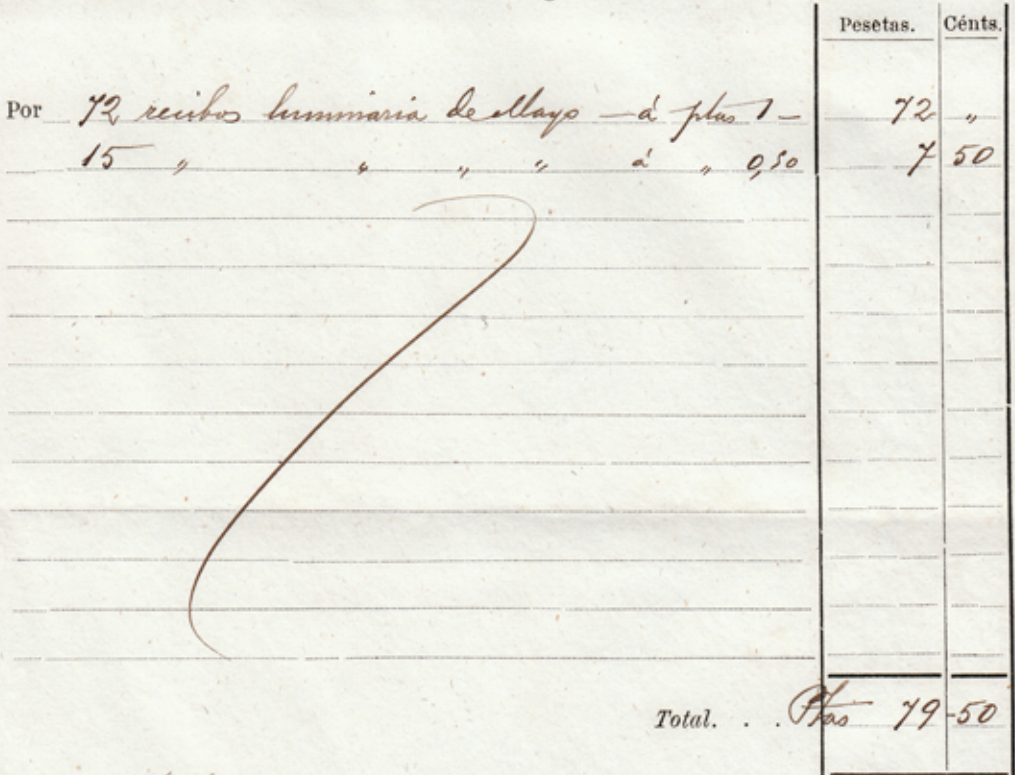 Pesetas. Cénts.
Por 72 recibos luminaria de Mayo — á ptas 1 — 72 „
15 „ „ „ „ á „ 0,50 7 50
Total. . . Ptas 79-50